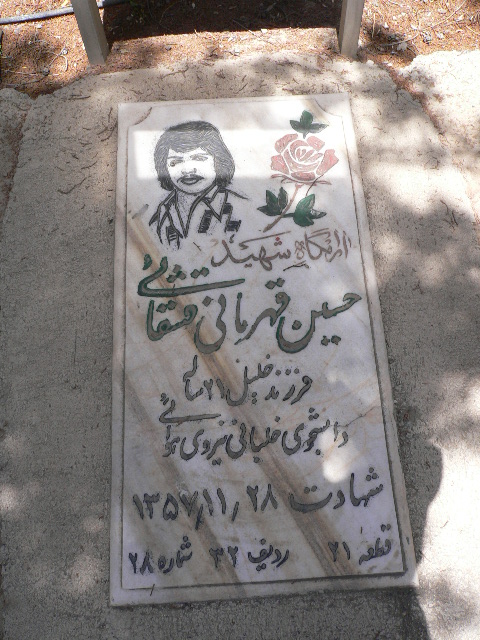 آرامگاه شهید
حسین قهرمانی قشقائی
فرزند خلیل ۲۱ ساله
دانشجوی خلبانی نیروی هوائی
شهادت ۲۸ / ۱۱ / ۱۳۵۷
قطعه ۲۱ ردیف ۳۲ شماره ۲۸